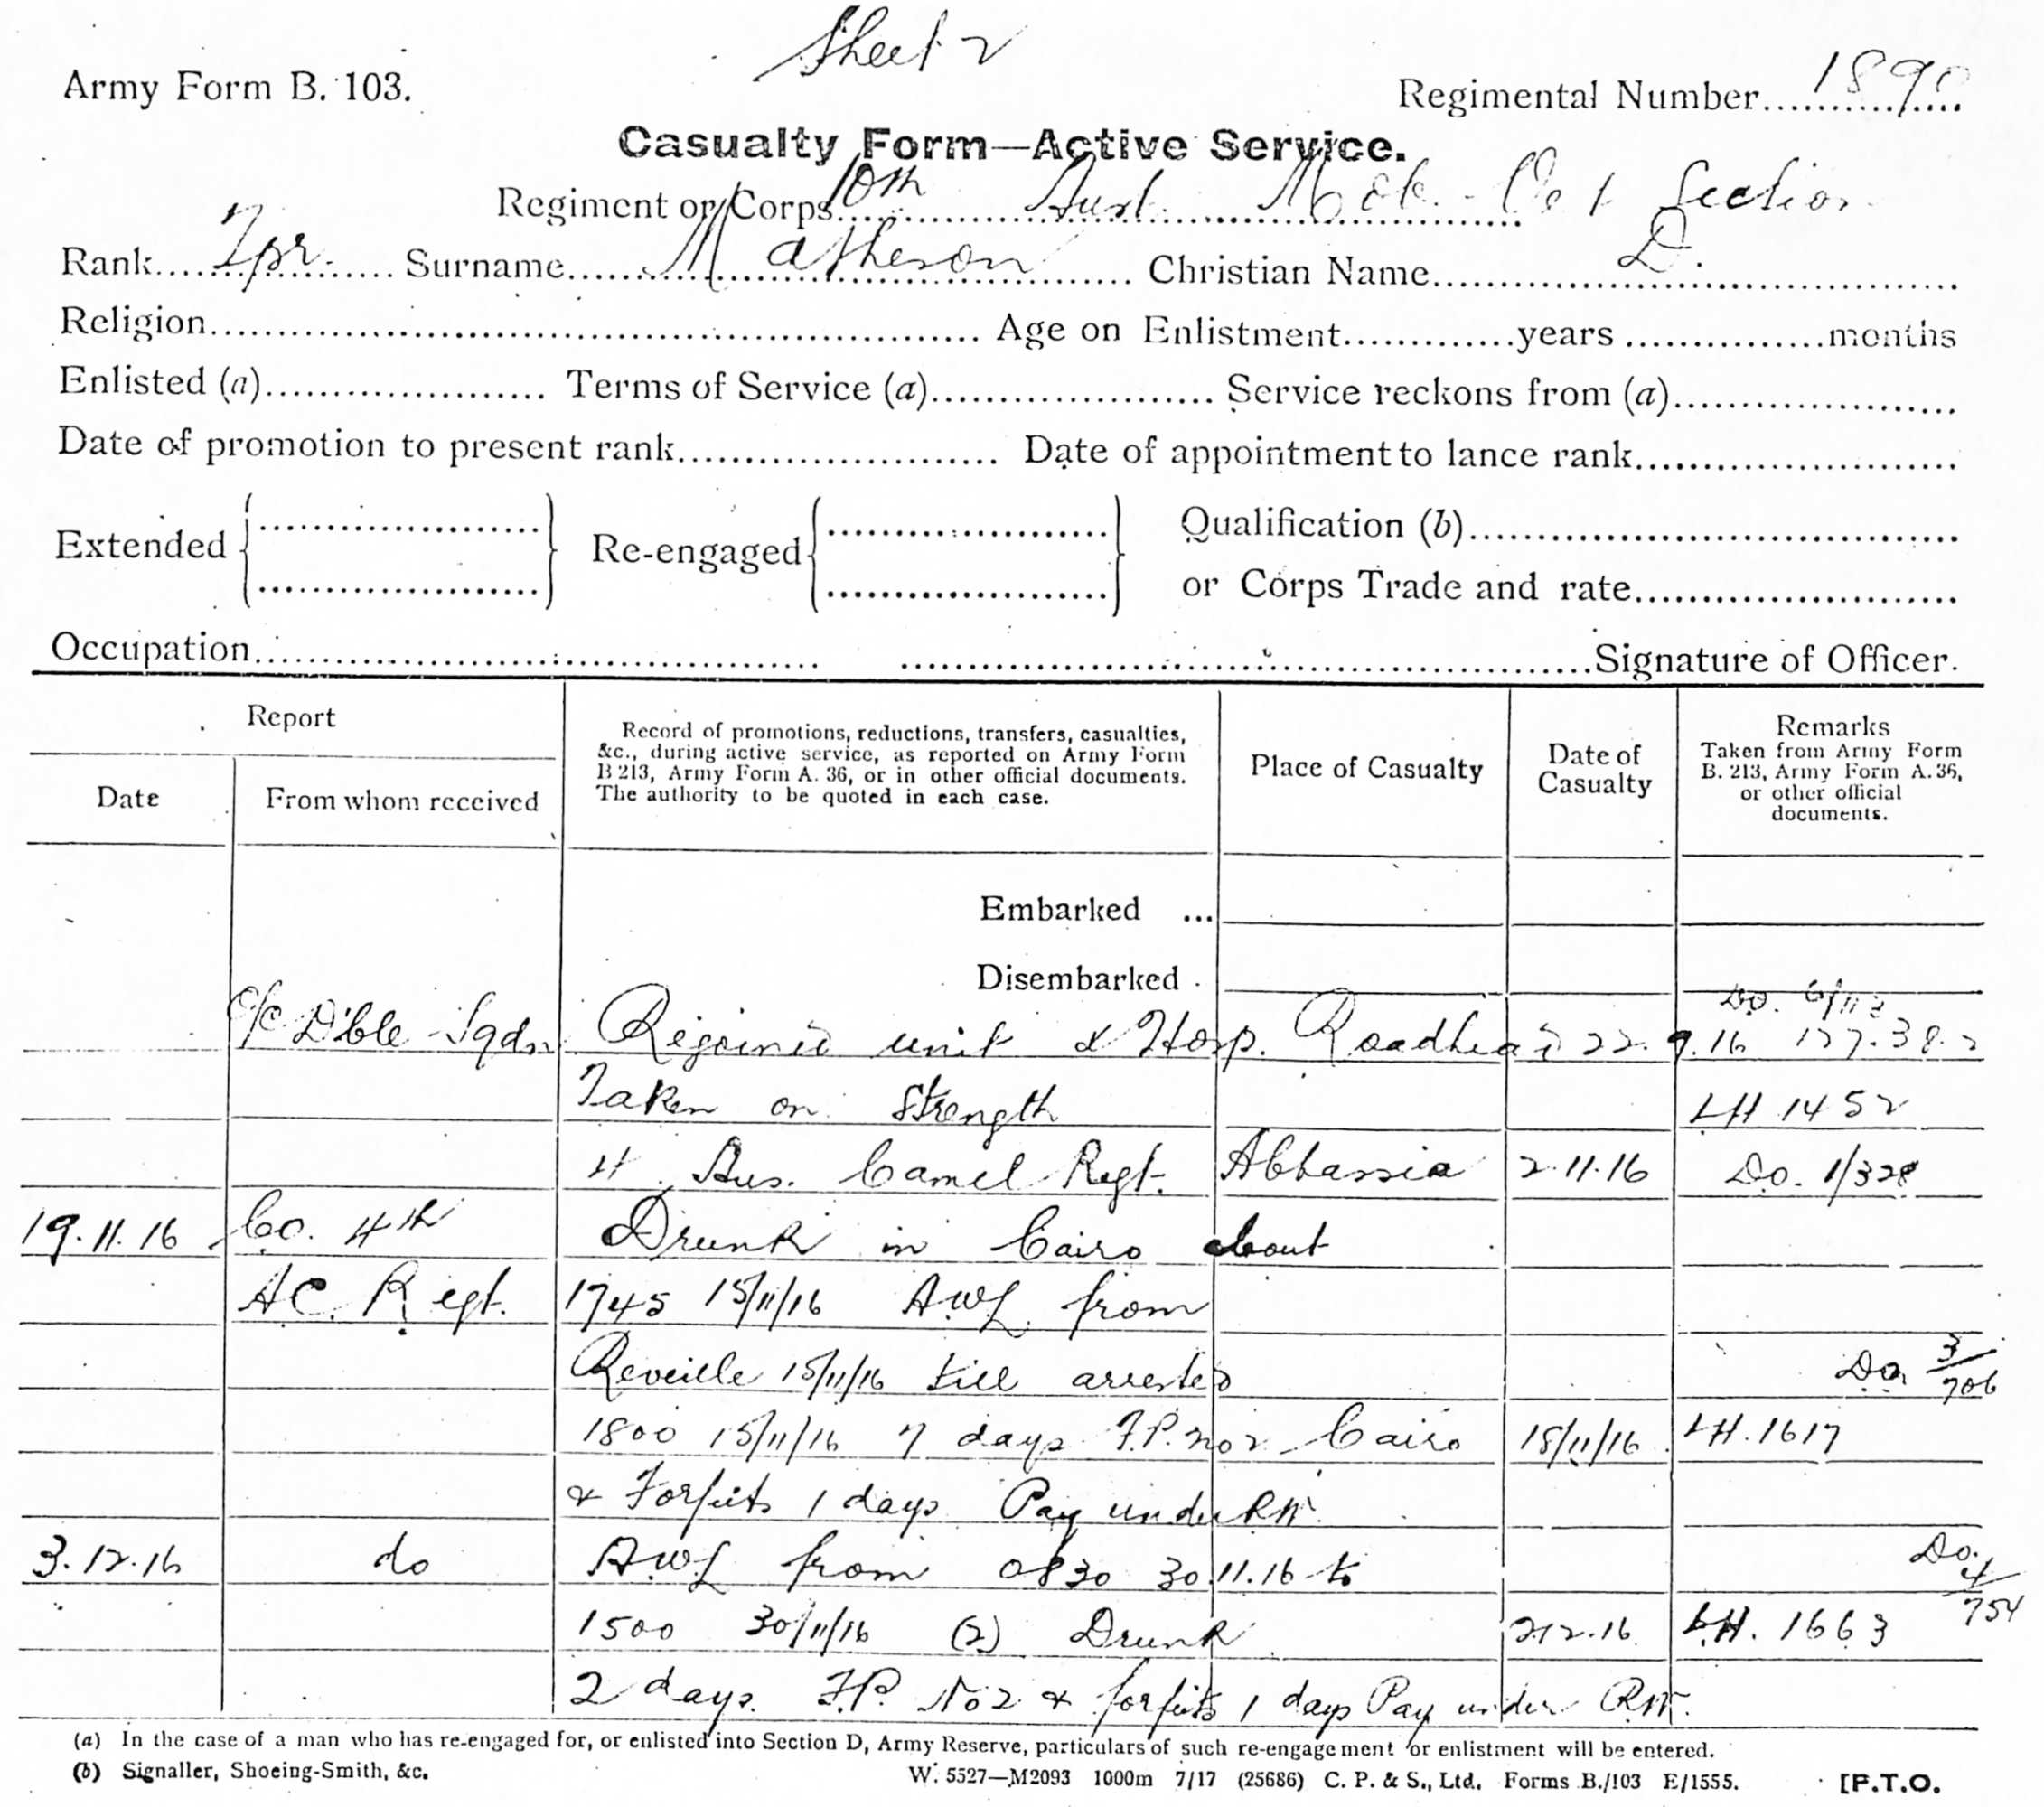 Sheet 2
Army Form B. 103.
Regimental Number 1890
Casualty Form—Active Service.
Regiment or Corps 10th Aust Mob. Vet Section
Rank Tpr. Surname Matheson Christian Name D.
Religion Age on Enlistment years months
Enlisted (a) Terms of Service (a) Service reckons from (a)
Date of promotion to present rank Date of appointment to lance rank
Extended Re-engaged Qualification (b)
or Corps Trade and rate
Occupation Signature of Officer.
Report
Date
From whom received
Record of promotions, reductions, transfers, casualties,
&c., during active service, as reported on Army Form
B 213, Army Form A. 36, or in other official documents.
The authority to be quoted in each case.
Place of Casualty
Date of
Casualty
Remarks
Taken from Army Form
B. 213, Army Form A. 36,
or other official
documents.
Embarked ...
Disembarked
DO.
O/C D'ble Sqdn Rejoined unit Hosp. Roadhead 22.9.16 127.38.2
Taken on Strength LH 1452
4 Aus. Camel Regt. Abbassia 2.11.16 Do. 1/328
19.11.16 Co. 4th Drunk in Cairo about
A.C. Regt. 1745 15/11/16 AWL from
Reveille 15/11/16 till arrested Do. 3/706
1800 15/11/16 7 days F.P. no 2 Cairo 18/11/16 LH. 1617
& Forfeits 1 days Pay under RW.
3.12.16 do AWL from 0830 30.11.16 to Do. 4/754
1500 30/11/16 (2) Drunk 2.12.16 LH. 1663
2 days. F.P. No 2 & forfeits 1 days Pay under RW.
(a) In the case of a man who has re-engaged for, or enlisted into Section D, Army Reserve, particulars of such re-engagement or enlistment will be entered.
(b) Signaller, Shoeing-Smith, &c.
W. 5527—M2093 1000m 7/17 (25686) C. P. & S., Ltd. Forms B./103 E/1555.
[P.T.O.